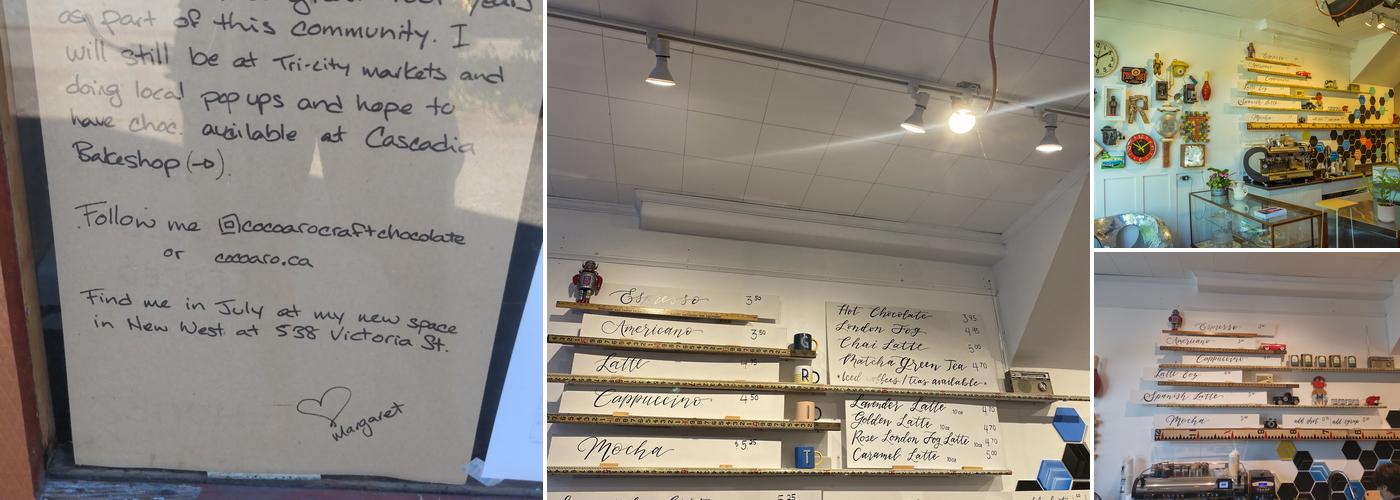 as part of this community. I
will still be at Tri-city markets and
doing local pop ups and hope to
have choc. available at Cascadia
Bakeshop (→).
Follow me @cocoarocraftchocolate
or cocoaro.ca
Find me in July at my new space
in New West at 538 Victoria St.
Margaret
Espresso 3.50
Americano 3.50
Latte 4.75
Cappuccino 4.50
Mocha $5.25
5.25
G
R
I
T
Hot Chocolate 3.95
London Fog 4.95
Chai Latte 5.00
Matcha Green Tea 4.70
*Iced coffees/teas available*
Lavender Latte 10oz 4.70
Golden Latte 10oz 4.70
Rose London Fog Latte 10oz 4.70
Caramel Latte 10oz 5.00
R
Mocha
Espresso
Americano
Cappuccino
Latte
Spanish Latte
Mocha